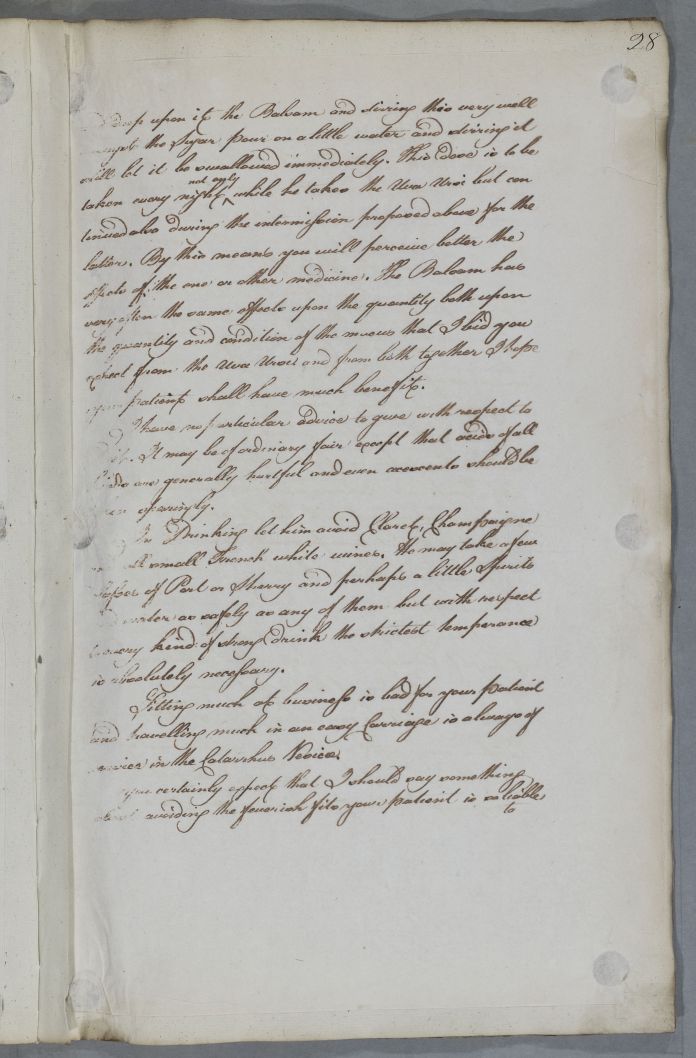 28
drop upon it the Balsam and stiring this very well
amongst the Sugar pour on a little water and stirring it
still let it be swallowed immediately. This dose is to be
taken every night not only while he takes the Uva Ursi but con
tinued also during the intermission proposed above for the
latter. By this means you will perceive better the
effects of the one or other medicine. The Balsam has
very often the same effects upon the quantity both upon
the quantity and condition of the mucus that I bid you
expect from the Uva Ursi and from both together I hope
your patient shall have much benefit.
I have no particular advice to give with respect to
It may be of ordinary fair except that acids of all
are generally hurtful and even acescents should be
sparingly.
In Drinking let him avoid Claret, Champaigne
small French white wines. He may take a few
Glasses of Port or Sherry and perhaps a little Spirits
water as safely as any of them but with respect
to every kind of strong drink the strictest temperance
is absolutely necessary.
Sitting much at business is bad for your patient
and travelling much in an easy Carriage is always of
service in the Catarrhus Vesicæ
you certainly expect that I should say something
about avoiding the feverish fits your patient is so liable
to